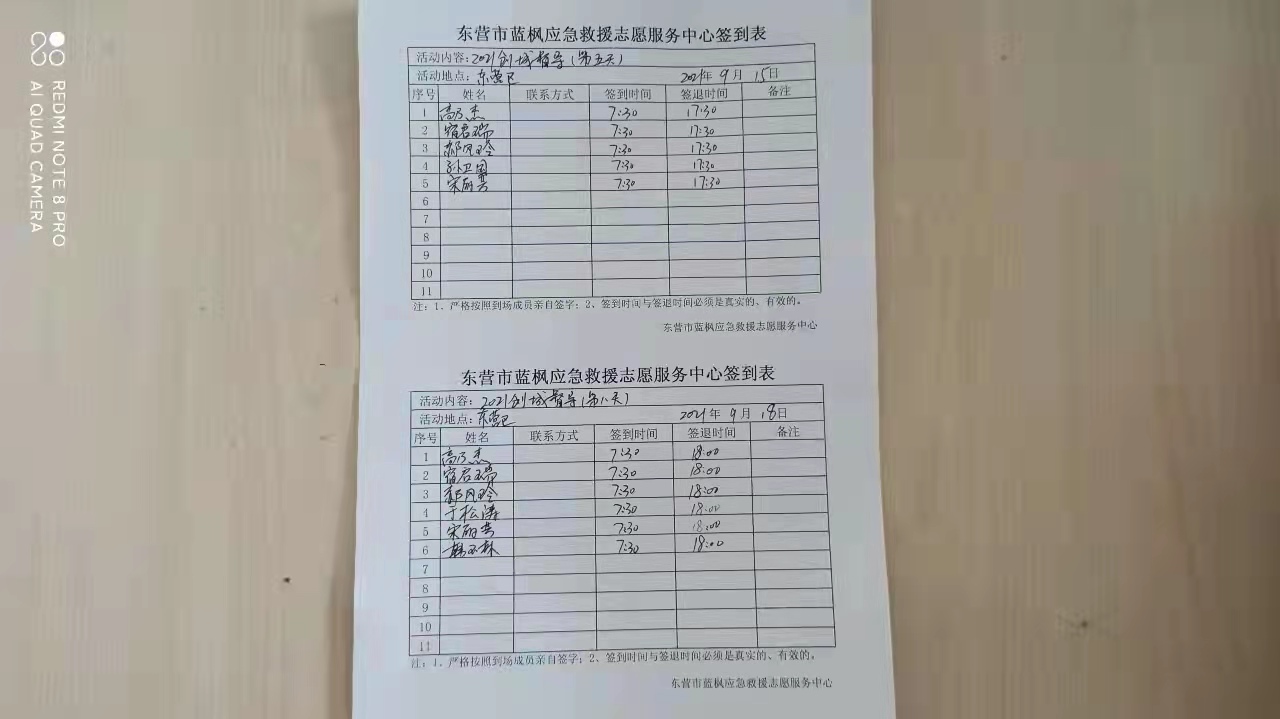 REDMI NOTE 8 PRO
AI QUAD CAMERA
东营市蓝枫应急救援志愿服务中心签到表
活动内容：2021创城督导（第五天）
活动地点：东营区 2021年 9月 15日
序号 姓名 联系方式 签到时间 签退时间 备注
1 高乃杰 7:30 17:30
2 宿君瑞 7:30 17:30
3 郝风玲 7:30 17:30
4 孙卫国 7:30 17:30
5 宋丽芸 7:30 17:30
6
7
8
9
10
11
注：1、严格按照到场成员亲自签字；2、签到时间与签退时间必须是真实的、有效的。
东营市蓝枫应急救援志愿服务中心
东营市蓝枫应急救援志愿服务中心签到表
活动内容：2021创城督导（第八天）
活动地点：东营区 2021年 9月 18日
序号 姓名 联系方式 签到时间 签退时间 备注
1 高乃杰 7:30 18:00
2 宿君瑞 7:30 18:00
3 郝风玲 7:30 18:00
4 于松涛 7:30 18:00
5 宋丽芸 7:30 18:00
6 7:30 18:00
7
8
9
10
11
注：1、严格按照到场成员亲自签字；2、签到时间与签退时间必须是真实的、有效的。
东营市蓝枫应急救援志愿服务中心